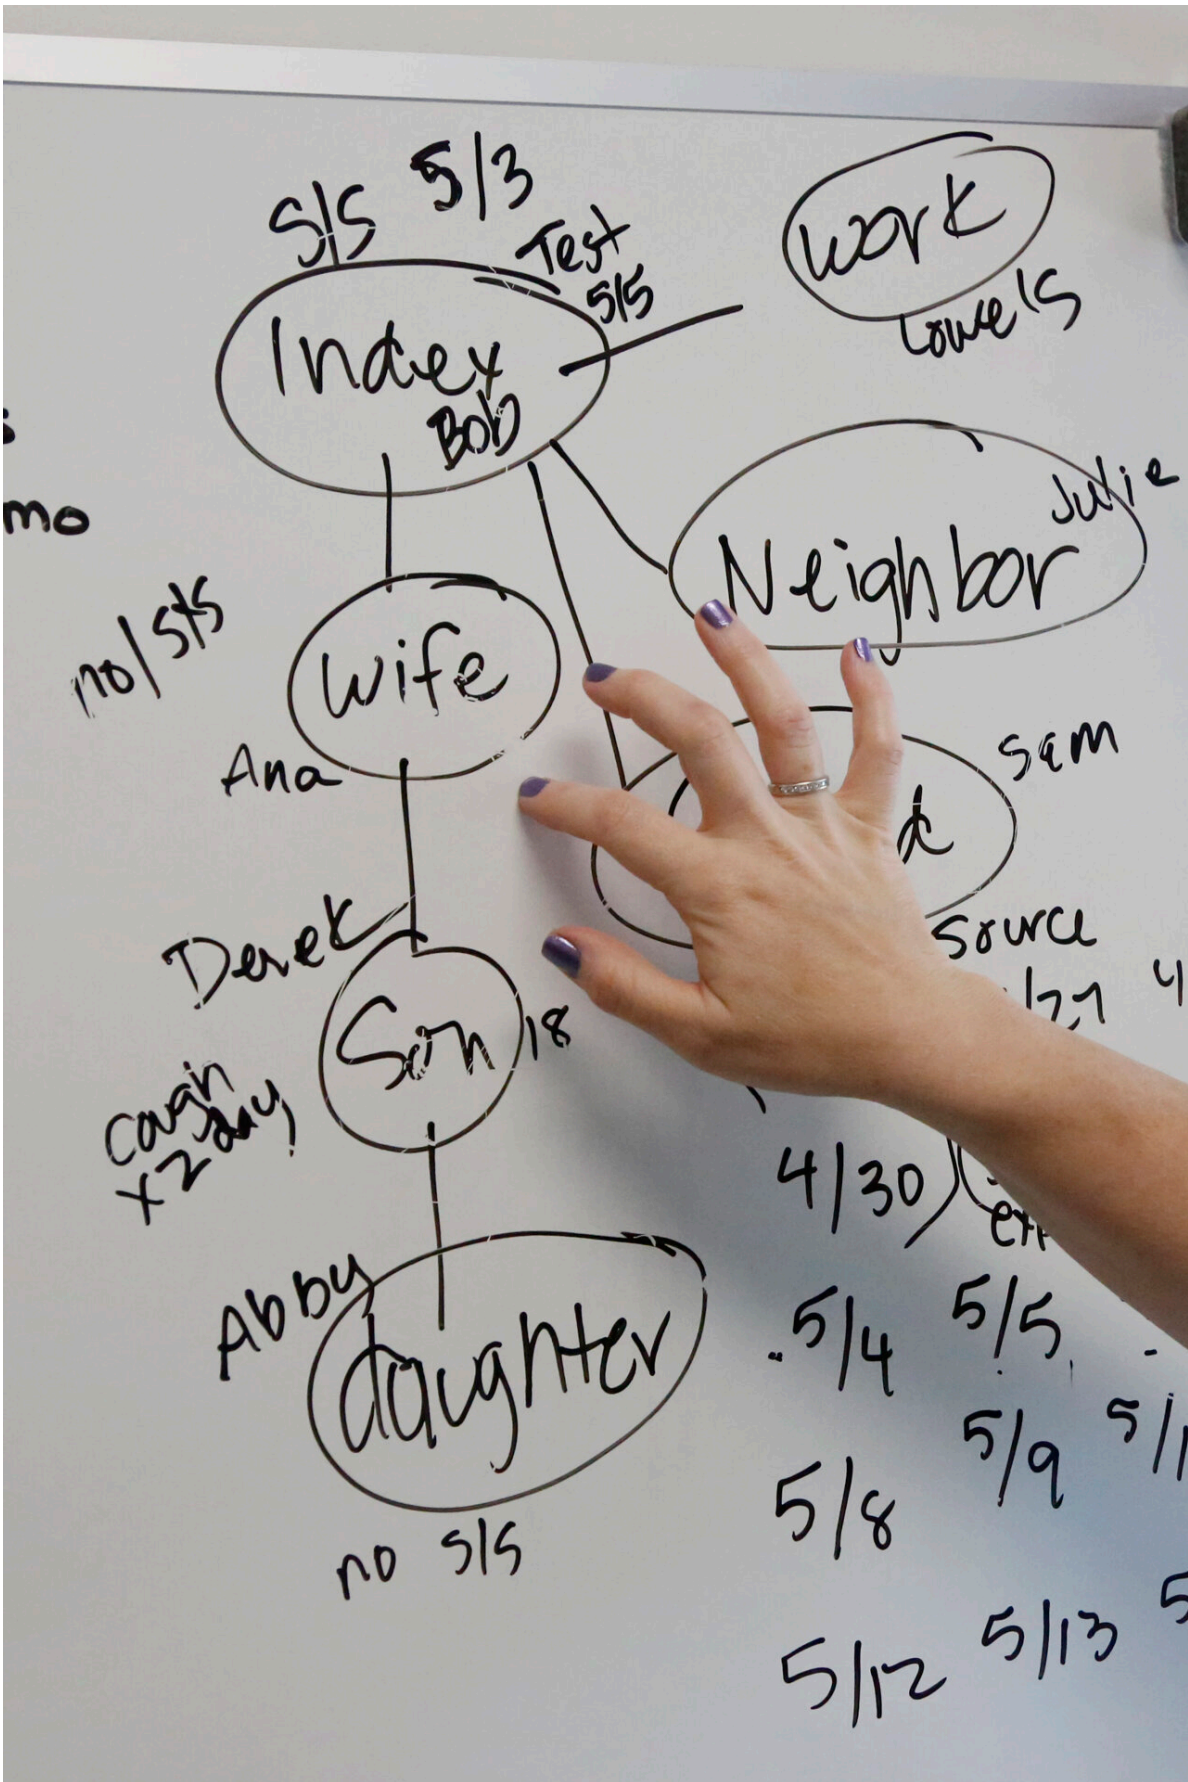 S/S 5/3
Test
5/5
Index
Bob
work
Lowe's
Julie
Neighbor
mo
no/S/S
wife
Ana
Sam
source
/27
Derek
Son 18
cough
x2 day
4/30
Abby
daughter
no S/S
5/4 5/5
5/8 5/9
5/12 5/13